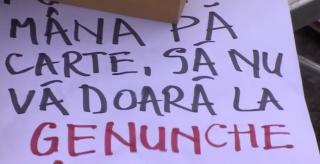 MÂNA PĂ
CARTE, SĂ NU
VĂ DOARĂ LA
GENUNCHE